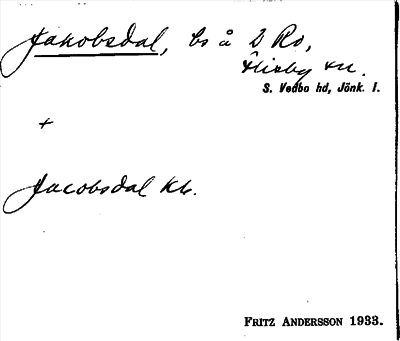 Jakobsdal, bs å 2 Ro,
Flisby sn.
S. Vedbo hd, Jönk. l.
+
Jacobsdal Kb.
FRITZ ANDERSSON 1933.